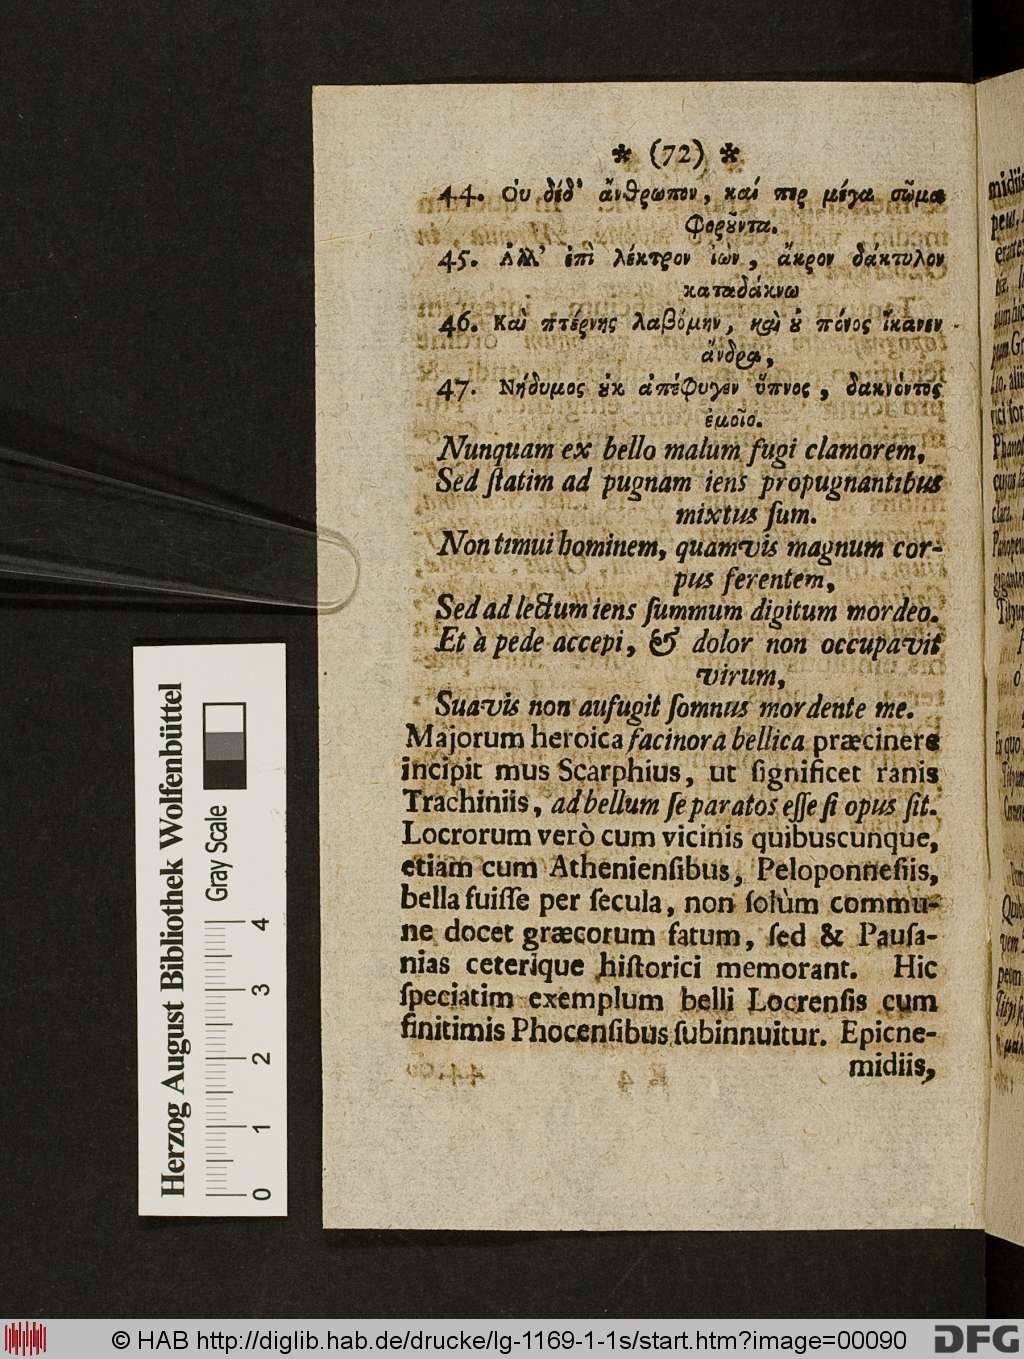 * (72) *
44. Ου δίδ' ἄνθρωπον, καί περ μέγα σῶμα
φορȣ͂ντα.
45. Ἀλλ' ἐπὶ λέκτρον ἰὼν, ἄκρον δάκτυλον
καταδάκνω
46. Καὶ πτέρνης λαβόμην, καὶ ȣ̓ πόνος ἵκανεν
ἄνδρα,
47. Νήδυμος ȣ̓κ ἀπέφυγεν ὕπνος, δακνόντος
ἐμοῖο.
Nunquam ex bello malum fugi clamorem,
Sed ſtatim ad pugnam iens propugnantibus
mixtus ſum.
Non timui hominem, quamvis magnum cor-
pus ferentem,
Sed ad lectum iens ſummum digitum mordeo.
Et à pede accepi, & dolor non occupavit
virum,
Suavis non aufugit ſomnus mordente me.
Majorum heroica facinora bellica præcinere
incipit mus Scarphius, ut ſignificet ranis
Trachiniis, ad bellum ſe paratos eſſe ſi opus ſit.
Locrorum verò cum vicinis quibuscunque,
etiam cum Athenienſibus, Peloponneſiis,
bella fuiſſe per ſecula, non ſolùm commu-
ne docet græcorum fatum, ſed & Pauſa-
nias ceterique hiſtorici memorant. Hic
ſpeciatim exemplum belli Locrenſis cum
finitimis Phocenſibus ſubinnuitur. Epicne-
midiis,
Herzog August Bibliothek Wolfenbüttel
Gray Scale
0 1 2 3 4
© HAB http://diglib.hab.de/drucke/lg-1169-1-1s/start.htm?image=00090
DFG